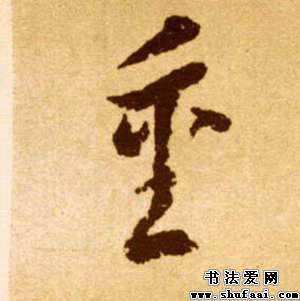 垂
书法爱网
www.shufaai.com